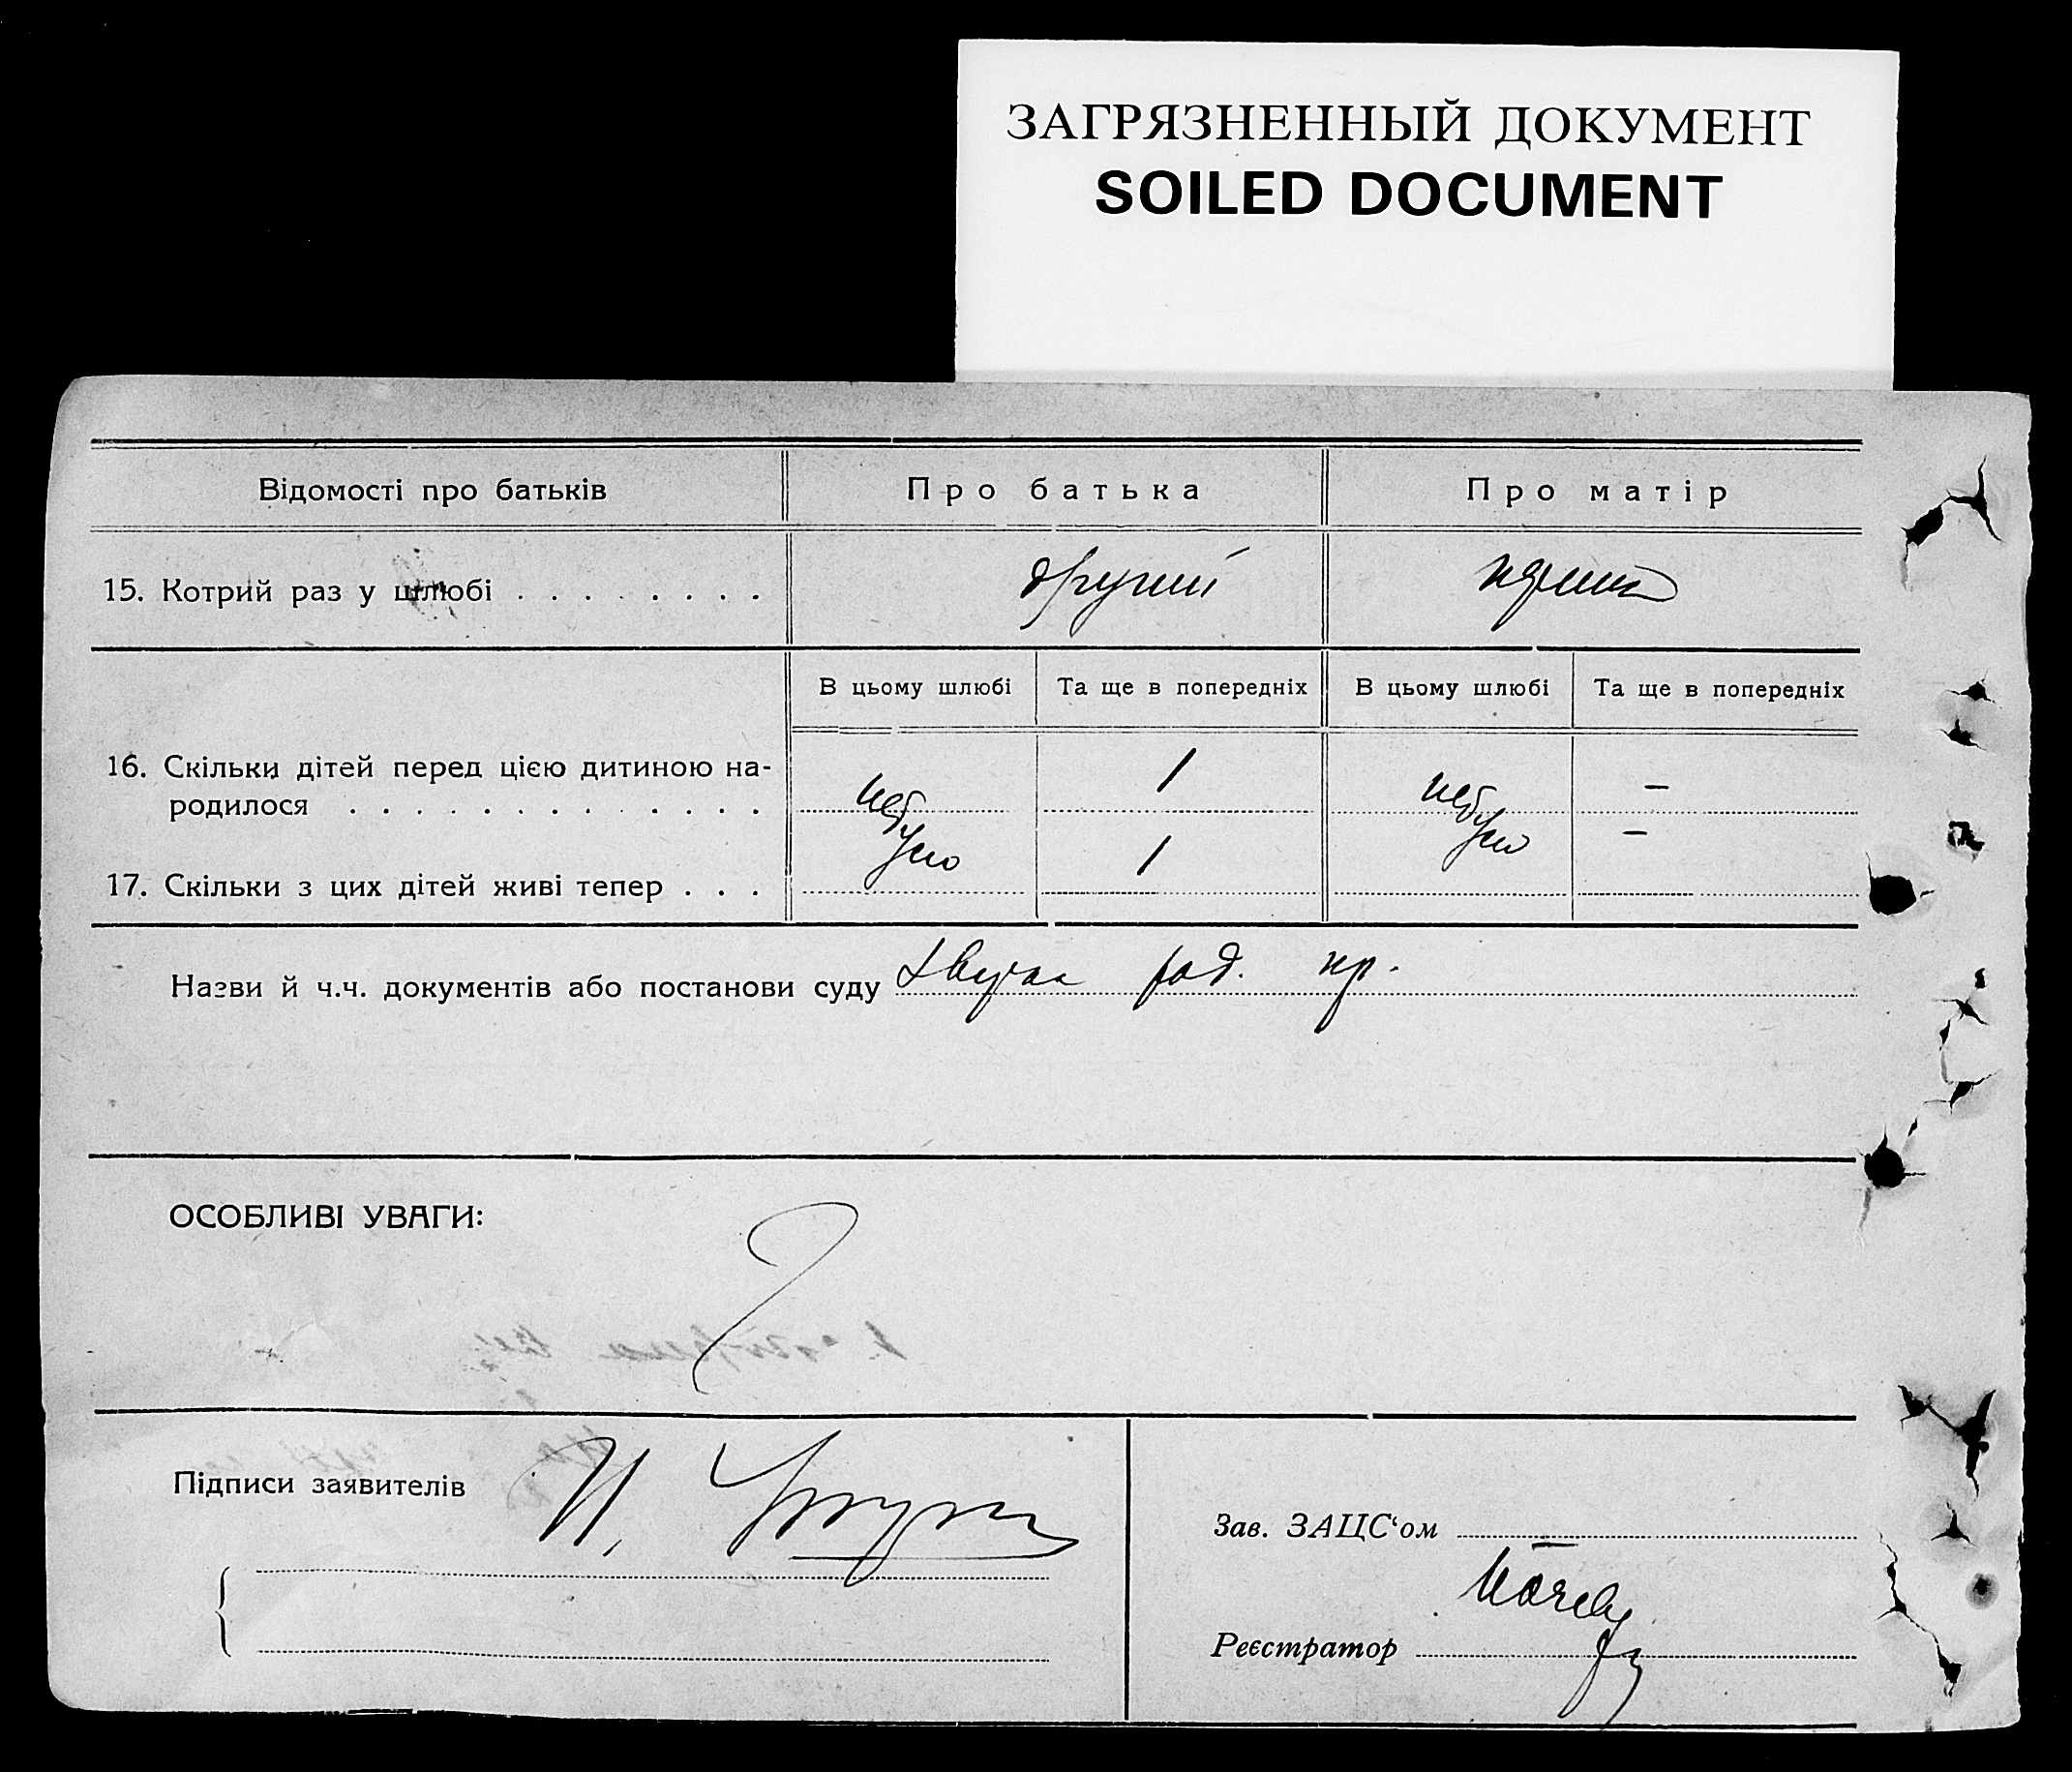 ЗАГРЯЗНЕННЫЙ ДОКУМЕНТ
SOILED DOCUMENT
Відомості про батьків Про батька Про матір
15. Котрий раз у шлюбі . . . . . . . . другий
В цьому шлюбі Та ще в попередніх В цьому шлюбі Та ще в попередніх
16. Скільки дітей перед цією дитиною на-
родилося . . . . . . . . . . . . . 1 –
17. Скільки з цих дітей живі тепер . . . 1 –
Назви й ч.ч. документів або постанови суду
ОСОБЛИВІ УВАГИ:
Підписи заявителів
Зав. ЗАЦС‘ом
Реєстратор